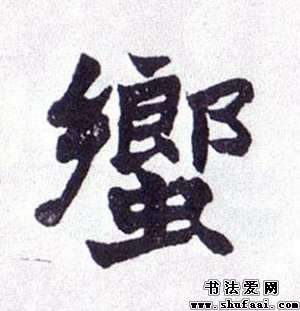 蠁
书法爱网
www.shufaai.com